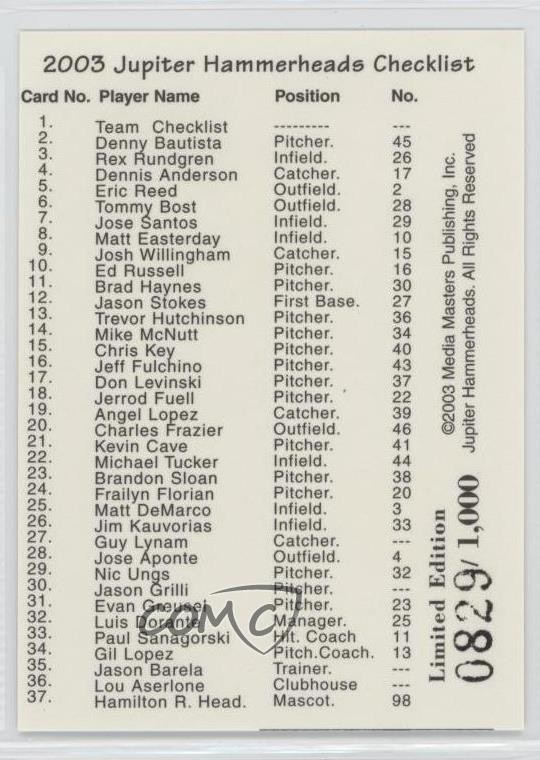 2003 Jupiter Hammerheads Checklist
Card No. Player Name Position No.
1. Team Checklist --------- ---
2. Denny Bautista Pitcher. 45
3. Rex Rundgren Infield. 26
4. Dennis Anderson Catcher. 17
5. Eric Reed Outfield. 2
6. Tommy Bost Outfield. 28
7. Jose Santos Infield. 29
8. Matt Easterday Infield. 10
9. Josh Willingham Catcher. 15
10. Ed Russell Pitcher. 16
11. Brad Haynes Pitcher. 30
12. Jason Stokes First Base. 27
13. Trevor Hutchinson Pitcher. 36
14. Mike McNutt Pitcher. 34
15. Chris Key Pitcher. 40
16. Jeff Fulchino Pitcher. 43
17. Don Levinski Pitcher. 37
18. Jerrod Fuell Pitcher. 22
19. Angel Lopez Catcher. 39
20. Charles Frazier Outfield. 46
21. Kevin Cave Pitcher. 41
22. Michael Tucker Infield. 44
23. Brandon Sloan Pitcher. 38
24. Frailyn Florian Pitcher. 20
25. Matt DeMarco Infield. 3
26. Jim Kauvorias Infield. 33
27. Guy Lynam Catcher. ---
28. Jose Aponte Outfield. 4
29. Nic Ungs Pitcher. 32
30. Jason Grilli Pitcher. ---
31. Evan Greusel Pitcher. 23
32. Luis Dorante Manager. 25
33. Paul Sanagorski Hit. Coach 11
34. Gil Lopez Pitch.Coach. 13
35. Jason Barela Trainer. ---
36. Lou Aserlone Clubhouse ---
37. Hamilton R. Head. Mascot. 98
©2003 Media Masters Publishing, Inc.
Jupiter Hammerheads. All Rights Reserved
Limited Edition
0829/1,000
COMC